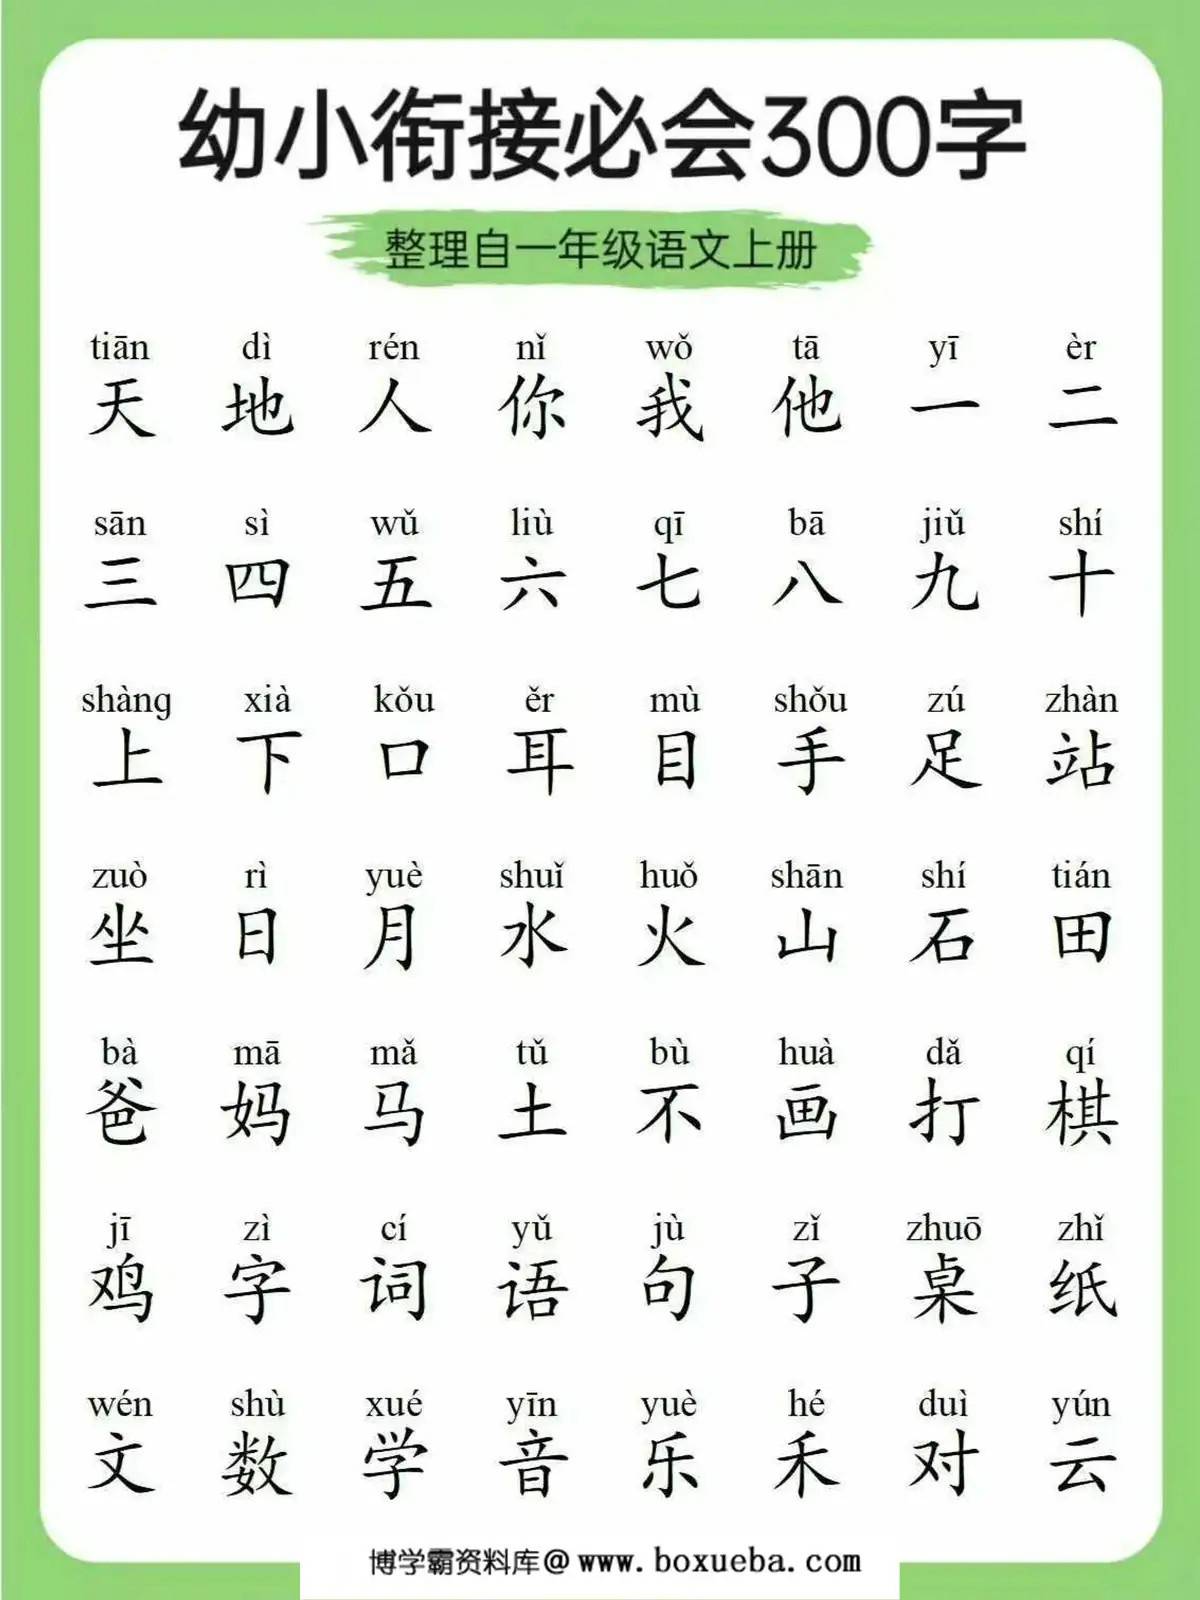 幼小衔接必会300字
整理自一年级语文上册
tiān dì rén nǐ wǒ tā yī èr
天 地 人 你 我 他 一 二
sān sì wǔ liù qī bā jiǔ shí
三 四 五 六 七 八 九 十
shàng xià kǒu ěr mù shǒu zú zhàn
上 下 口 耳 目 手 足 站
zuò rì yuè shuǐ huǒ shān shí tián
坐 日 月 水 火 山 石 田
bà mā mǎ tǔ bù huà dǎ qí
爸 妈 马 土 不 画 打 棋
jī zì cí yǔ jù zǐ zhuō zhǐ
鸡 字 词 语 句 子 桌 纸
wén shù xué yīn yuè hé duì yún
文 数 学 音 乐 禾 对 云
博学霸资料库@ www.boxueba.com